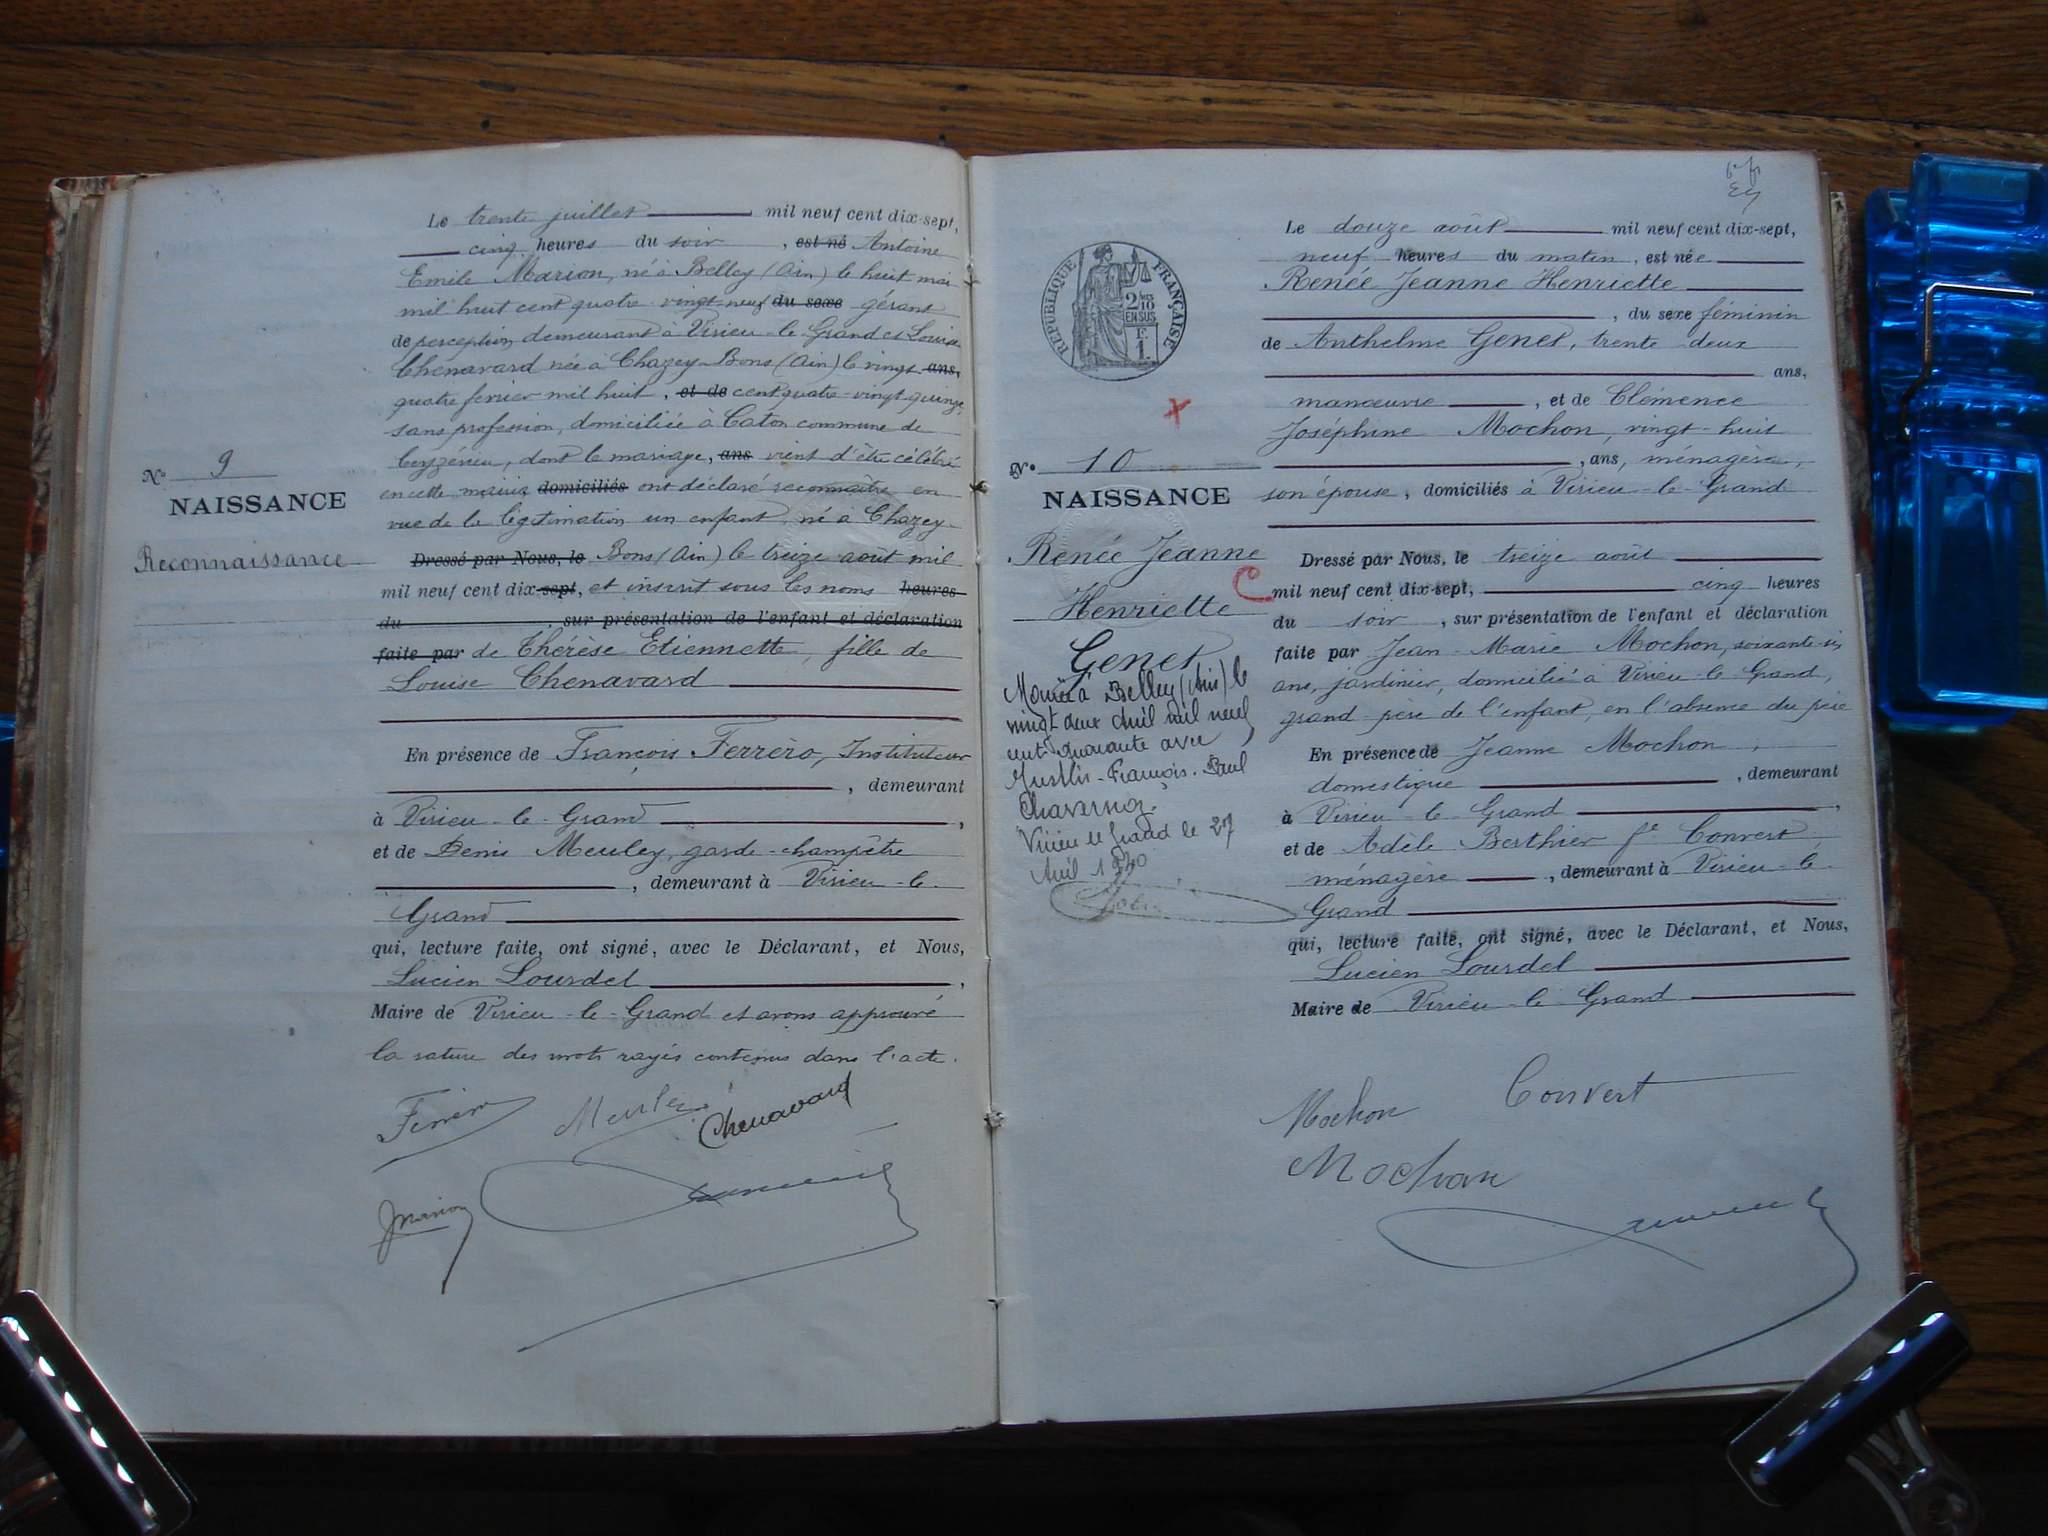 Le trente juillet mil neuf cent dix-sept,
cinq heures du soir, est né Antoine
Emile Marion, né à Belley (Ain) le huit mai
mil huit cent quatre-vingt-neuf du sexe gérant
de perception demeurant à Virieu-le-Grand et Louise
Chenavard née à Chazey-Bons (Ain) le vingt ans,
quatre février mil huit, et de cent quatre-vingt quinze,
sans profession, domiciliée à Caton commune de
Ceyzérieu, dont le mariage, ans vient d'être célébré
en cette mairie domiciliés ont déclaré reconnaître en
vue de la légitimation un enfant, né à Chazey-
Dressé par Nous, le Bons (Ain) le treize août mil
mil neuf cent dix-sept, et inscrit sous les noms heures
du , sur présentation de l'enfant et déclaration
faite par de Thérèse Etiennette, fille de
Louise Chenavard
En présence de François Ferrero, Instituteur
, demeurant
à Virieu-le-Grand,
et de Denis Meuley, garde-champêtre
, demeurant à Virieu-le-
Grand
qui, lecture faite, ont signé, avec le Déclarant, et Nous,
Lucien Lourdel,
Maire de Virieu-le-Grand et avons approuvé
la rature des mots rayés contenus dans l'acte.
Meuley
Chenavard
Marion
N° 9
NAISSANCE
Reconnaissance
RÉPUBLIQUE FRANÇAISE
2/10
EN SUS
F.
1.
N° 10
NAISSANCE
Renée Jeanne
Henriette
Genet
Mariée à Belley (Ain) le
vingt deux Avril mil neuf
cent quarante avec
François Paul
Virieu le Grand le 27
Avril 1940
Le douze août mil neuf cent dix-sept,
neuf heures du matin, est née
Renée Jeanne Henriette
, du sexe féminin
de Anthelme Genet, trente-deux
ans,
manœuvre, et de Clémence
Joséphine Mochon, vingt-huit
, ans, ménagère,
son épouse, domiciliés à Virieu-le-Grand
Dressé par Nous, le treize août
mil neuf cent dix-sept, cinq heures
du soir, sur présentation de l'enfant et déclaration
faite par Jean-Marie Mochon, soixante-six
ans, jardinier, domicilié à Virieu-le-Grand,
grand-père de l'enfant, en l'absence du père
En présence de Jeanne Mochon,
domestique, demeurant
à Virieu-le-Grand,
et de Adèle Berthier fe Convert
ménagère, demeurant à Virieu-le-
Grand
qui, lecture faite, ont signé, avec le Déclarant, et Nous,
Lucien Lourdel
Maire de Virieu-le-Grand
Convert
Mochon
Mochon